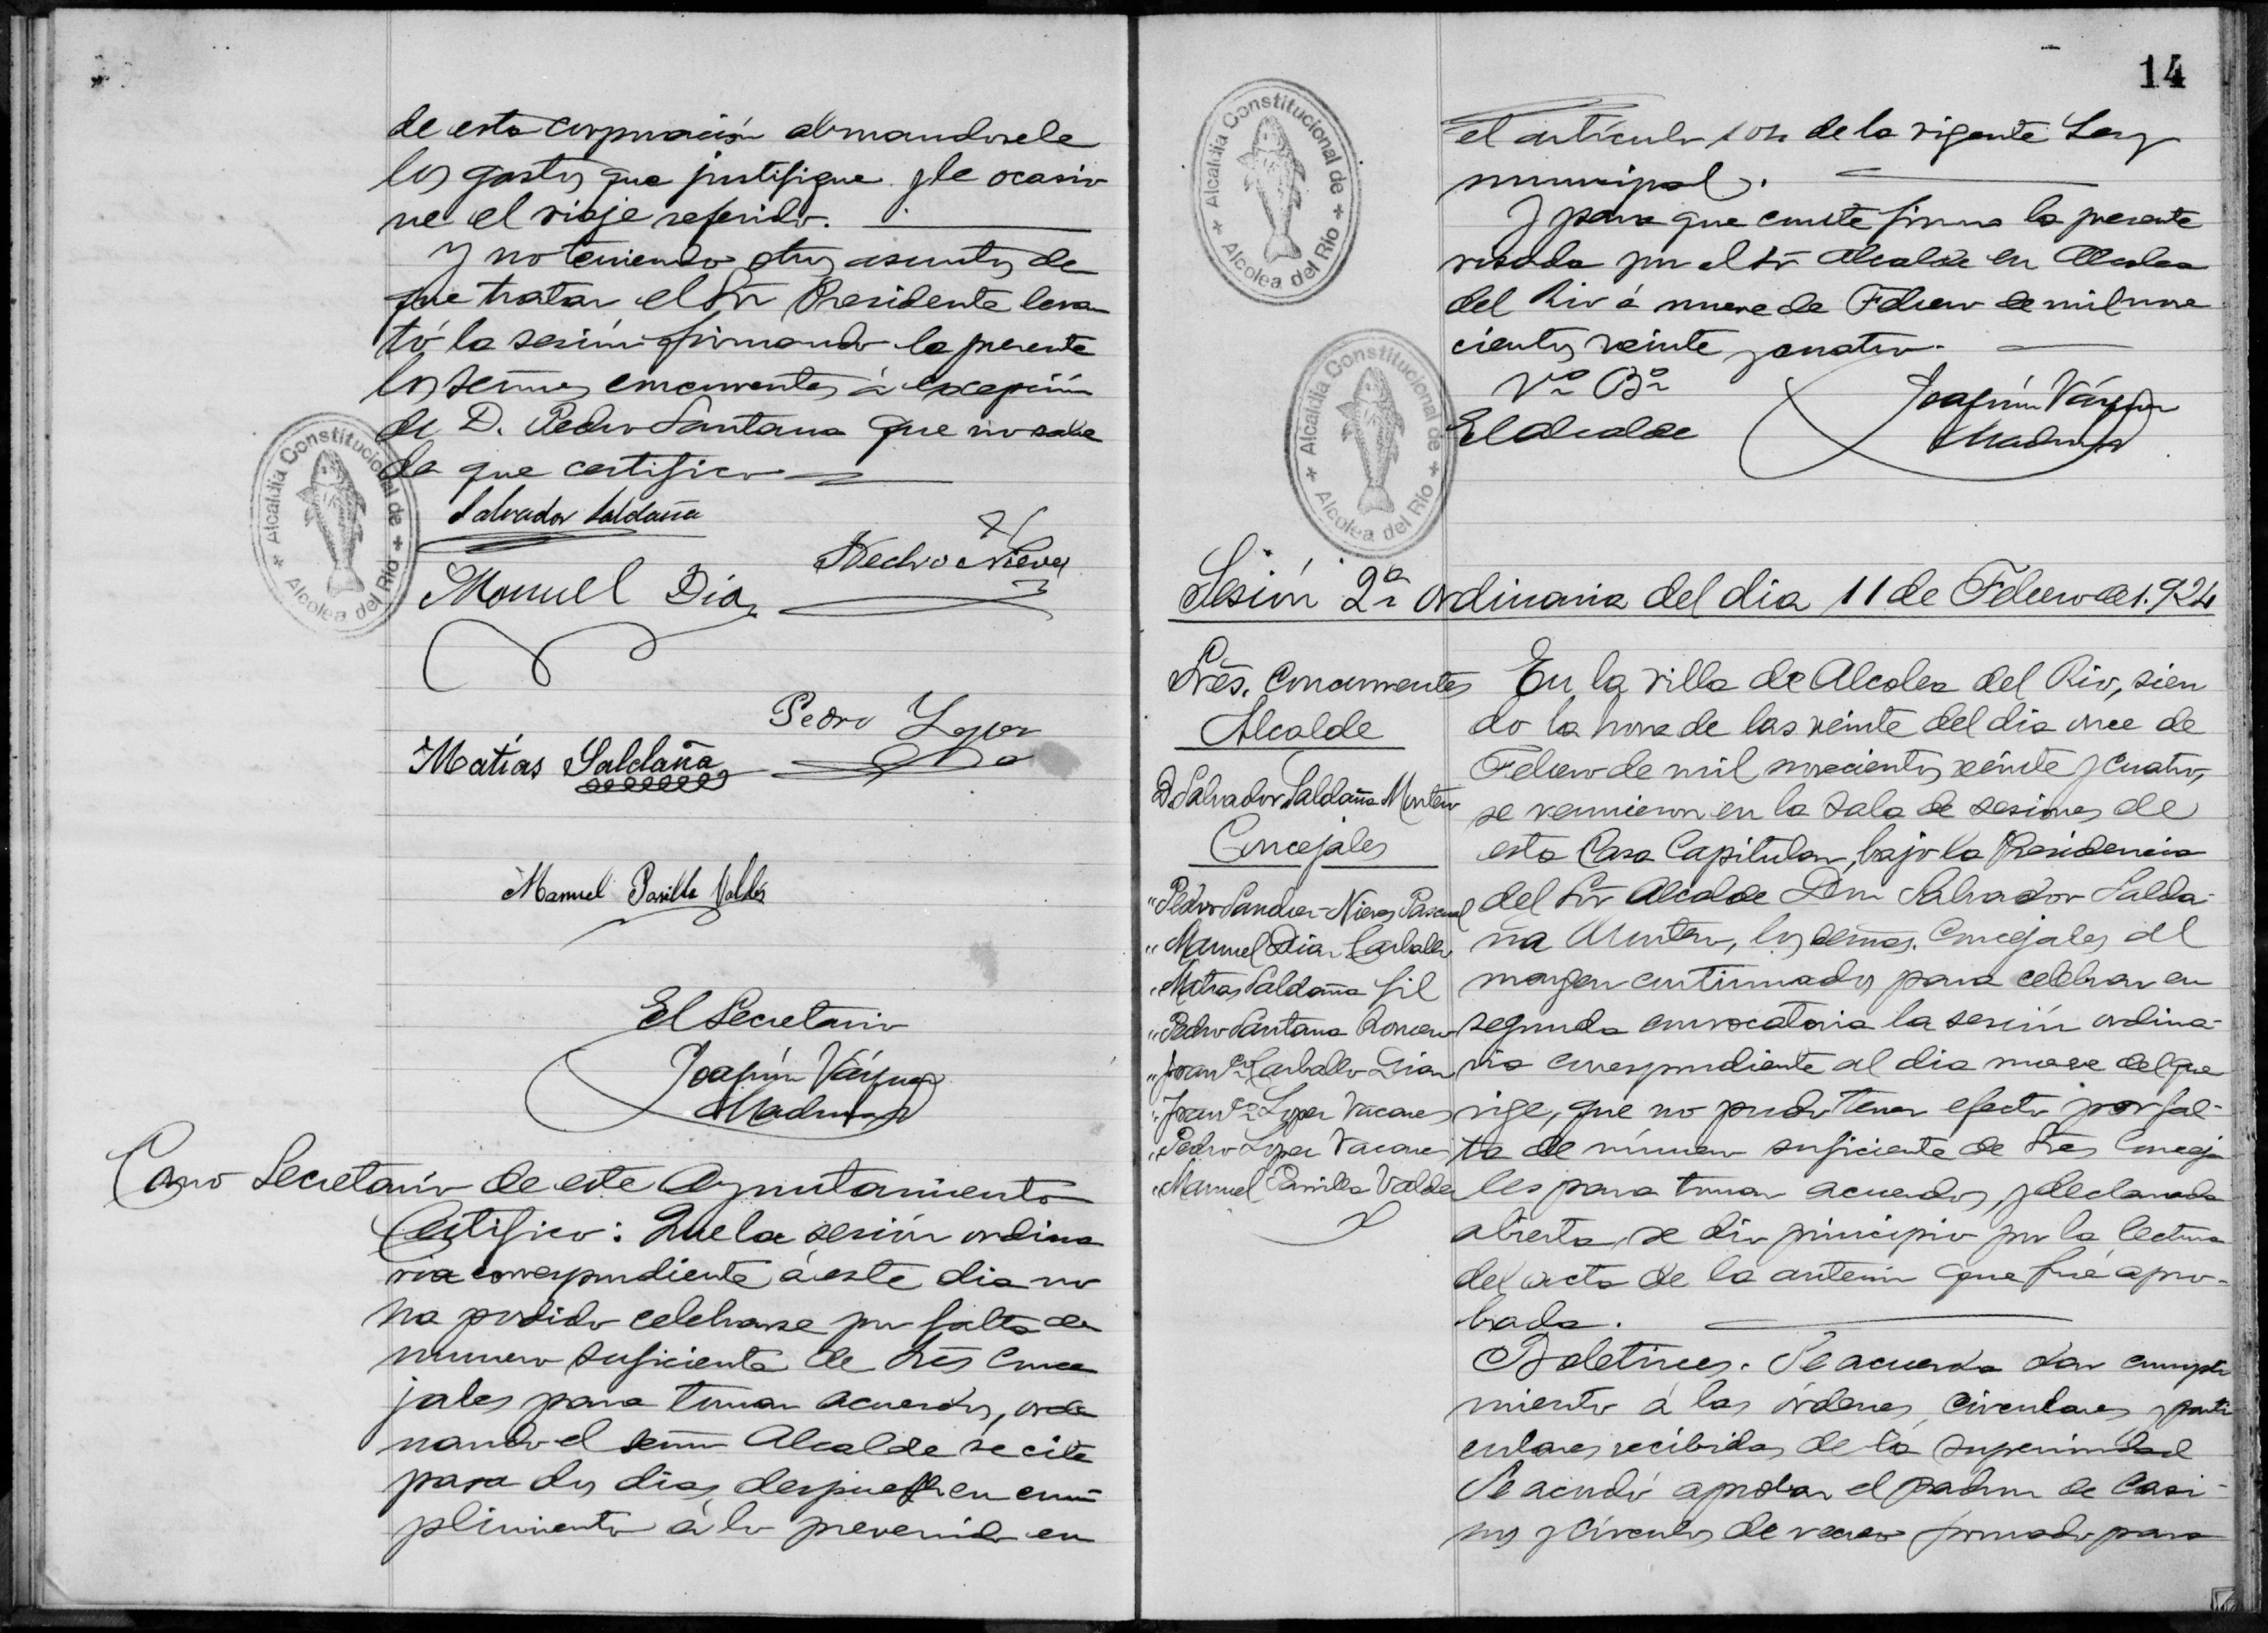 de esta corporación abonandosele
los gastos que justifique y le ocasio
ne el viaje referido.
Y no teniendo otros asuntos de
que tratar el Sr Presidente levan
tó la sesión firmando la presente
los señores concurrentes á excepción
de D. Pedro Santana que no sabe
de que certifico
Salvador Saldaña
Pedro S Nieves
Manuel Diaz
Pedro Lopez
Matías Saldaña
Manuel Parrilla Valdés
El Secretario
Joaquín Vázquez
Madueño
Como Secretario de este Ayuntamiento
Certifico: Que la sesión ordina
ria correspondiente á este dia no
ha podido celebrarse por falta de
numero suficiente de Sres Conce
jales para tomar acuerdos, orde
nando el señor Alcalde se cite
para dos dias despues en cum
plimiento á lo prevenido en
Alcaldia Constitucional de
Alcolea del Rio
14
el artículo 104 de la vigente Ley
municipal.
Y para que conste firmo la presente
visada por el Sr Alcalde en Alcolea
del Rio á nueve de Febrero de mil nove
cientos veinte y cuatro.
Vº Bº
El alcalde
Joaquín Vázquez
Madueño
Alcaldia Constitucional de
Alcolea del Rio
Alcaldia Constitucional de
Alcolea del Rio
Sesión 2ª ordinaria del dia 11 de Febrero de 1.924
Sres. Concurrentes
Alcalde
D Salvador Saldaña Montero
Concejales
" Pedro Sanchez-Nieves Pascual
" Manuel Diaz Carballo
" Matias Saldaña Gil
" Pedro Santana Romero
" Franco Carballo Diaz
" Franco Lopez Vacares
" Pedro Lopez Vacares
" Manuel Parrilla Valdes
En la villa de Alcolea del Rio, sien
do la hora de las veinte del dia once de
Febrero de mil novecientos veinte y cuatro,
se reunieron en la Sala de sesiones de
esta Casa Capitular, bajo la Presidencia
del Sr Alcalde Don Salvador Salda-
ña Montero, los señores Concejales al
margen continuados para celebrar en
segunda convocatoria la sesión ordina-
ria correspondiente al dia nueve del que
rige, que no pudo tener efecto por fal-
ta de número suficiente de Sres Conceja
les para tomar acuerdos, y declarada
abierta, se dio principio por la lectura
del acta de la anterior que fué apro-
bada.
Boletines. Se acuerda dar cumpli
miento á las órdenes, circulares y parti
culares recibidas de la superioridad
Se acordó aprobar el padron de Casi-
nos y Circulos de recreo formado para